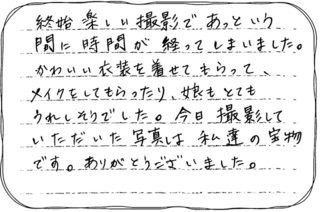 終始楽しい撮影であっという
間に時間が経ってしまいました。
かわいい衣装を着せてもらって、
メイクをしてもらったり、娘もとても
うれしそうでした。今日撮影して
いただいた写真は私達の宝物
です。ありがとうございました。